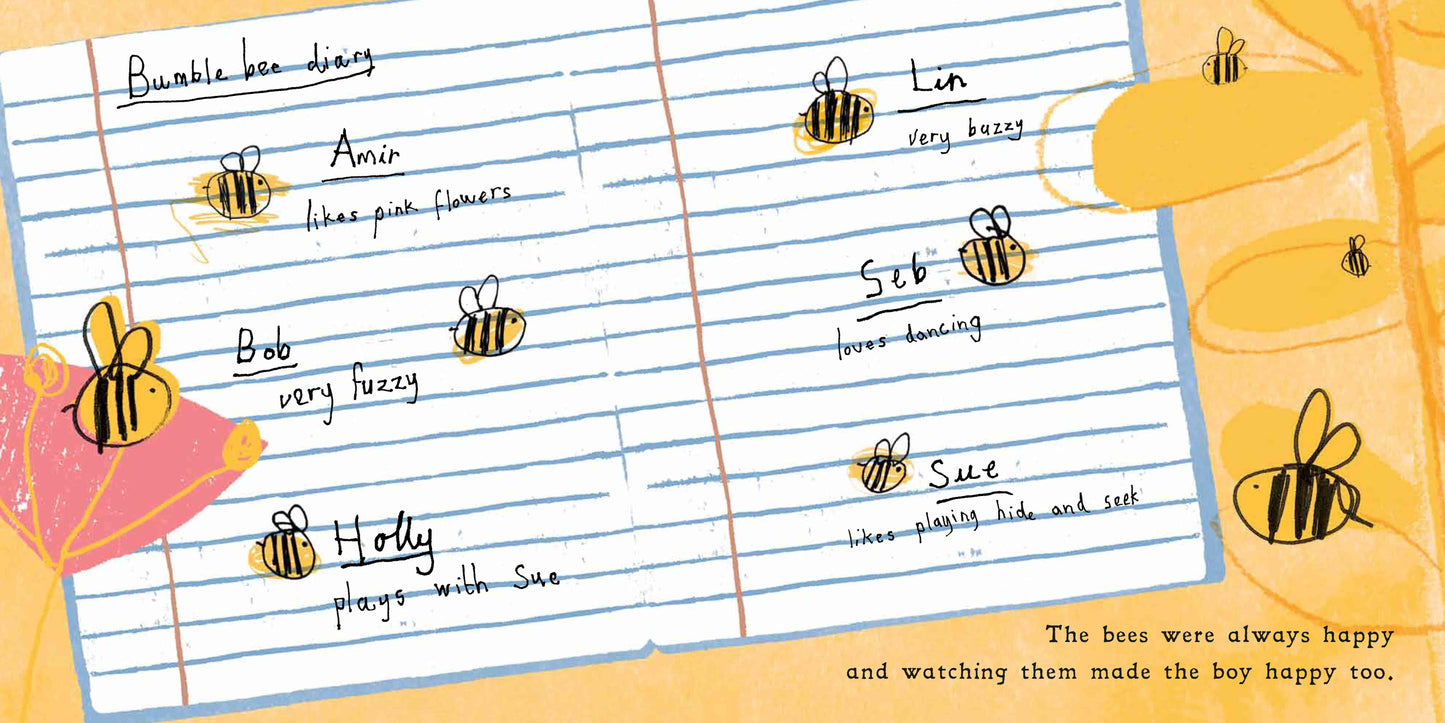 Bumble bee diary
Amir
likes pink flowers
Bob
very fuzzy
Holly
plays with Sue
Lin
very buzzy
Seb
loves dancing
Sue
likes playing hide and seek
The bees were always happy
and watching them made the boy happy too.